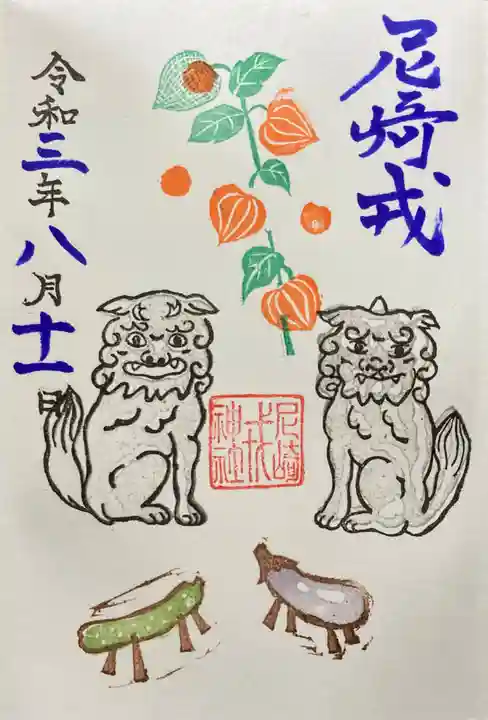 尼﨑戎
尼崎
戎
神社
令和三年八月十一日